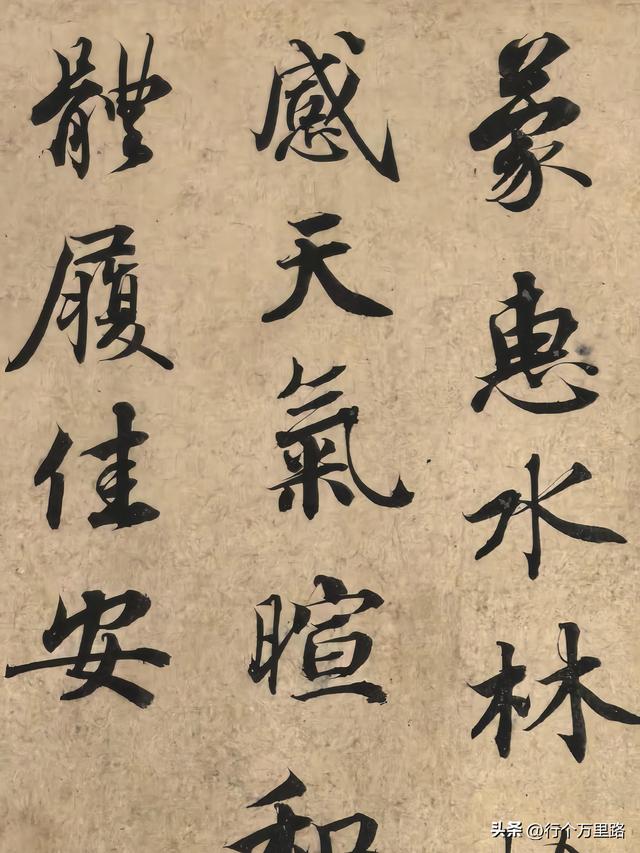 蒙惠水林
感天氣暄和
體履佳安
头条 @行个万里路